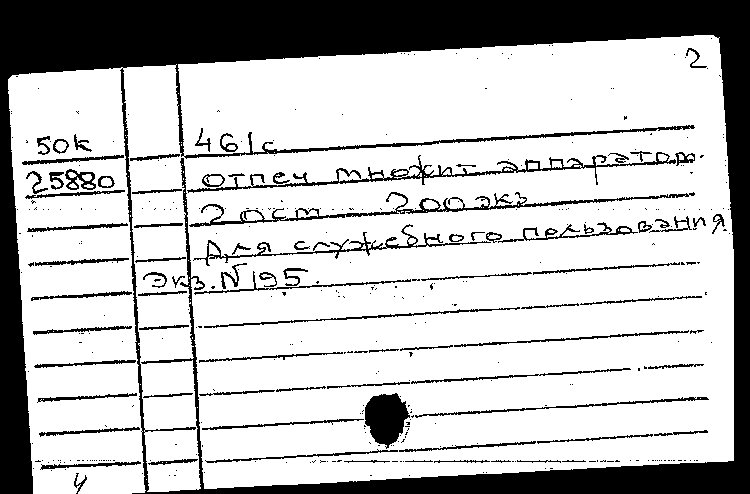 2
50к 461с
25880 отпеч множит аппаратом.
2 ост 200 экз
Для служебного пользования
Экз. N 195.
4